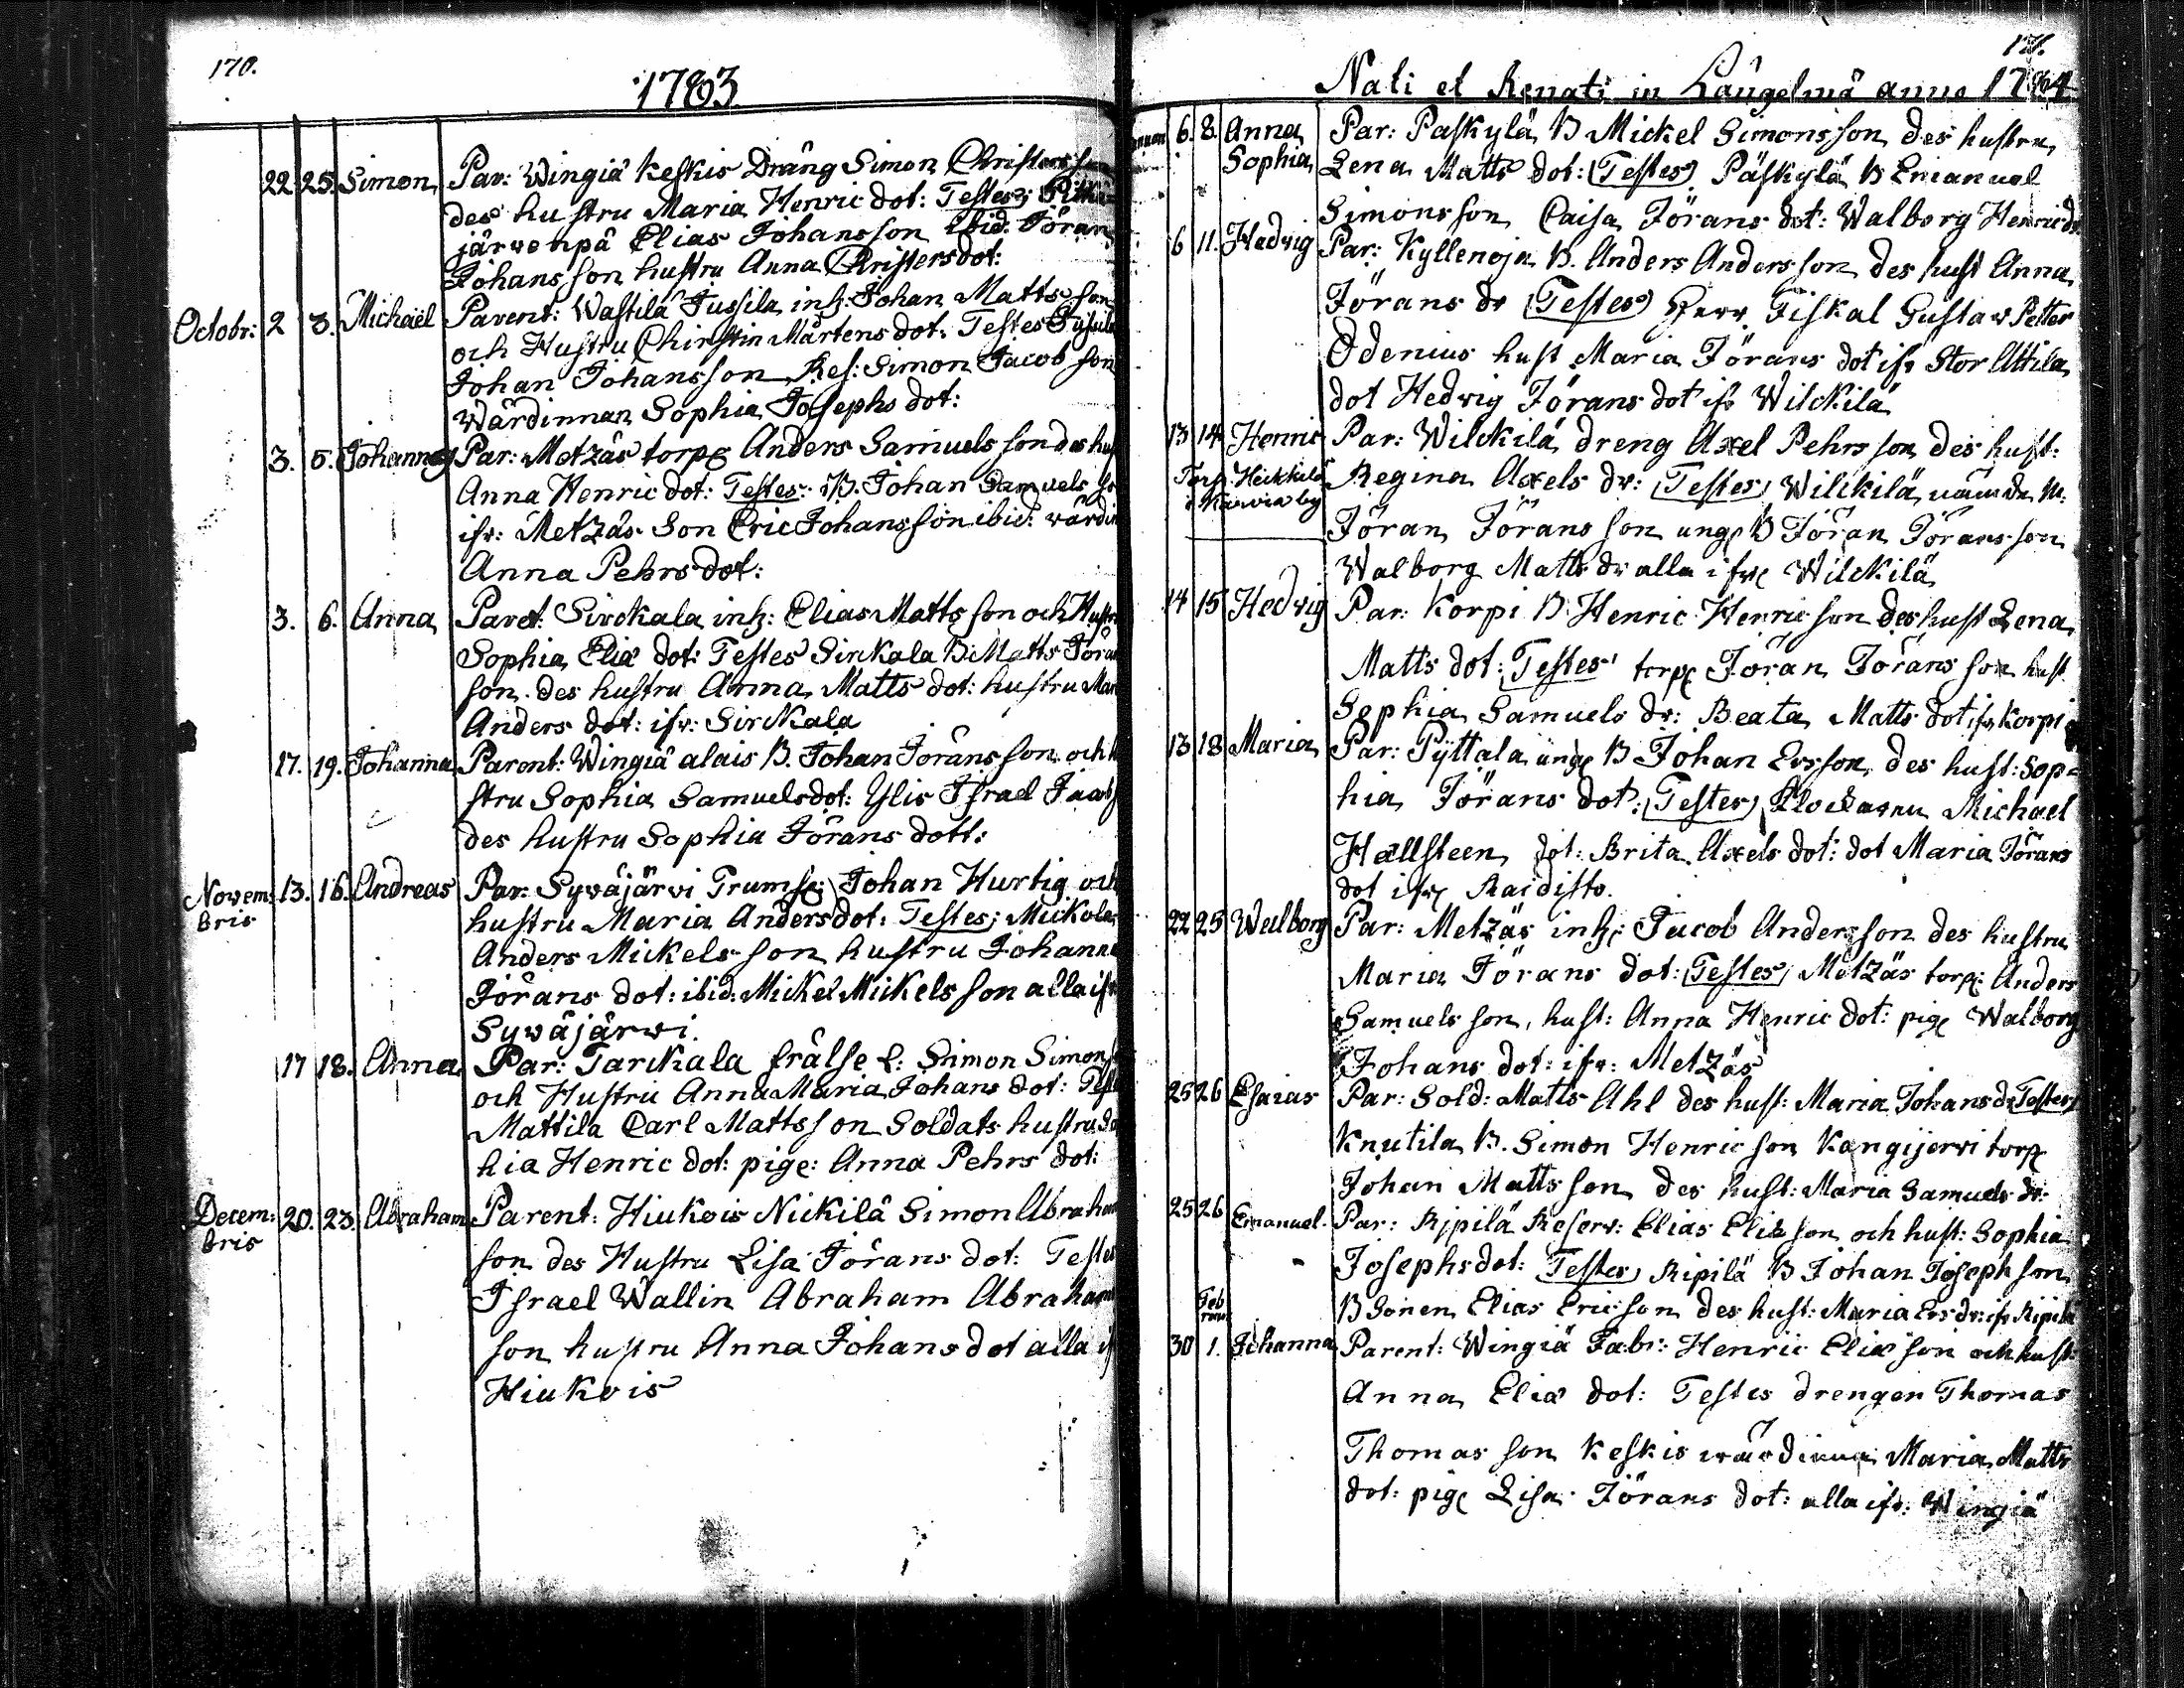 170.
1783
22. 25. Simon Par: Wingiä Keskis Dräng Simon Christersson
des hustru Maria Henric dot: Testes; Pitkä-
järvenpä Elias Johansson Ibid. Jöran
Johansson hustru Anna Christersdot:
Octobr: 2 3. Michaël Parent: Wastila Jussila inh: Johan Matts son
och Hustru Chirstin Mårtens dot: Testes Jussila
Johan Johansson Res: Simon Jacob son
Wärdinnan Sophia Josephs dot:
3. 5. Johannes Par: Metzäs torp Anders Samuels son des hu
Anna Henric dot: Testes: B. Johan Samuels so
ifr: Metzäs Son Eric Johansson ibid: wärdin
Anna Pehrs dot:
3. 6. Anna Paret: Sirckala inh: Elias Matts son och Hustru
Sophia Eliæ dot: Testes Sirckala B. Matts Jöran
son des hustru Anna Matts dot: hustru Mar
Anders dot: ifr: Sirckala
17. 19. Johanna Parent: Wingiä alais B. Johan Jörans son och h
stru Sophia Samuelsdot: Ylis Israel Jacobs
des hustru Sophia Jörans dott:
Novem: 13. 16. Andreas Par: Sywäjärvi Trumsl: Johan Hurtig och
bris hustru Maria Andersdot: Testes; Mickola
Anders Mickels son hustru Johanna
Jörans dot: ibid: Mickel Mickels son alla ifr
Sywäjärvi.
17 18. Anna Par: Tarckala frälse L: Simon Simons
och Hustru Anna Maria Johans dot: Test
Mattila Carl Mattsson Soldats hustru So
hia Henric dot: pige: Anna Pehrs dot:
Decem: 20. 23. Abraham Parent: Hiukois Nickilä Simon Abraham
bris son des Hustru Lisa Jörans dot: Testes
Israel Wallin Abraham Abraham
son hustru Anna Johans dot alla if
Hiukois
171.
Nati et Renati in Längelmä anno 1784
6. 8. Anna Par: Paskylä B Mickel Simonsson des hustru
Sophia Lena Matts dot: Testes Päskylä B Emanuel
Simonsson Caisa Jörans dot: Walborg Henricdr
6 11. Hedvig Par: Kyllenoja B. Anders Andersson des hust Anna
Jörans dr Testes Herr Fiskal Gustaw Petter
Odenius hust Maria Jörans dot ifr Stor Attila
dot Hedvig Jörans dot ifr Wilckilä
13 14. Henric Par: Wilckilä dreng Axel Pehrs son des hust:
Torp Heikkilä Regina Axels dr: Testes Wilckilä nämde M:
by Jöran Jörans son unge B Jöran Jörans son
Walborg Matts dr alla ifr Wilckilä
14 15 Hedvig Par: Korpi B Henric Henric son des hust Lena
Matts dot: Testes torp Jöran Jörans son hust
Sophia Samuels dr: Beata Matts dot ifr Korpi
13 18 Maria Par: Pyttala unge B Johan Ersson des hust: Sop-
hia Jörans dot: Testes Klockaren Michael
Hällsteen dot: Brita Axels dot: dot Maria Jörans
dot ifr Raidisto.
22 25 Walborg Par: Metzäs inh: Jacob Andersson des hustru
Maria Jörans dot: Testes Metzäs torp: Anders
Samuels son, hust: Anna Henric dot: pige Walborg
Johans dot: ifr: Metzäs
25 26 Esaias Par: Sold: Matts Ahl des hust: Maria Johans dr Testes
Knutila B. Simon Henric son Kangijervi torp
Johan Matts son des hust: Maria Samuels dr:
25 26 Emanuel. Par: Ripilä Reserv: Elias Eliæ son och hust: Sophia
Josephs dot: Testes Ripilä B Johan Joseph son
Feb B Sonen Elias Ericson des hust: Maria Ers dr: ifr Ripilä
30 1. Johanna Parent: Wingiä Fabr: Henric Eliæ son och hust:
Anna Eliæ dot: Testes drengen Thomas
Thomas son Keskis wärdinna Maria Matts
dot: pige Lisa Jörans dot: alla ifr: Wingiä